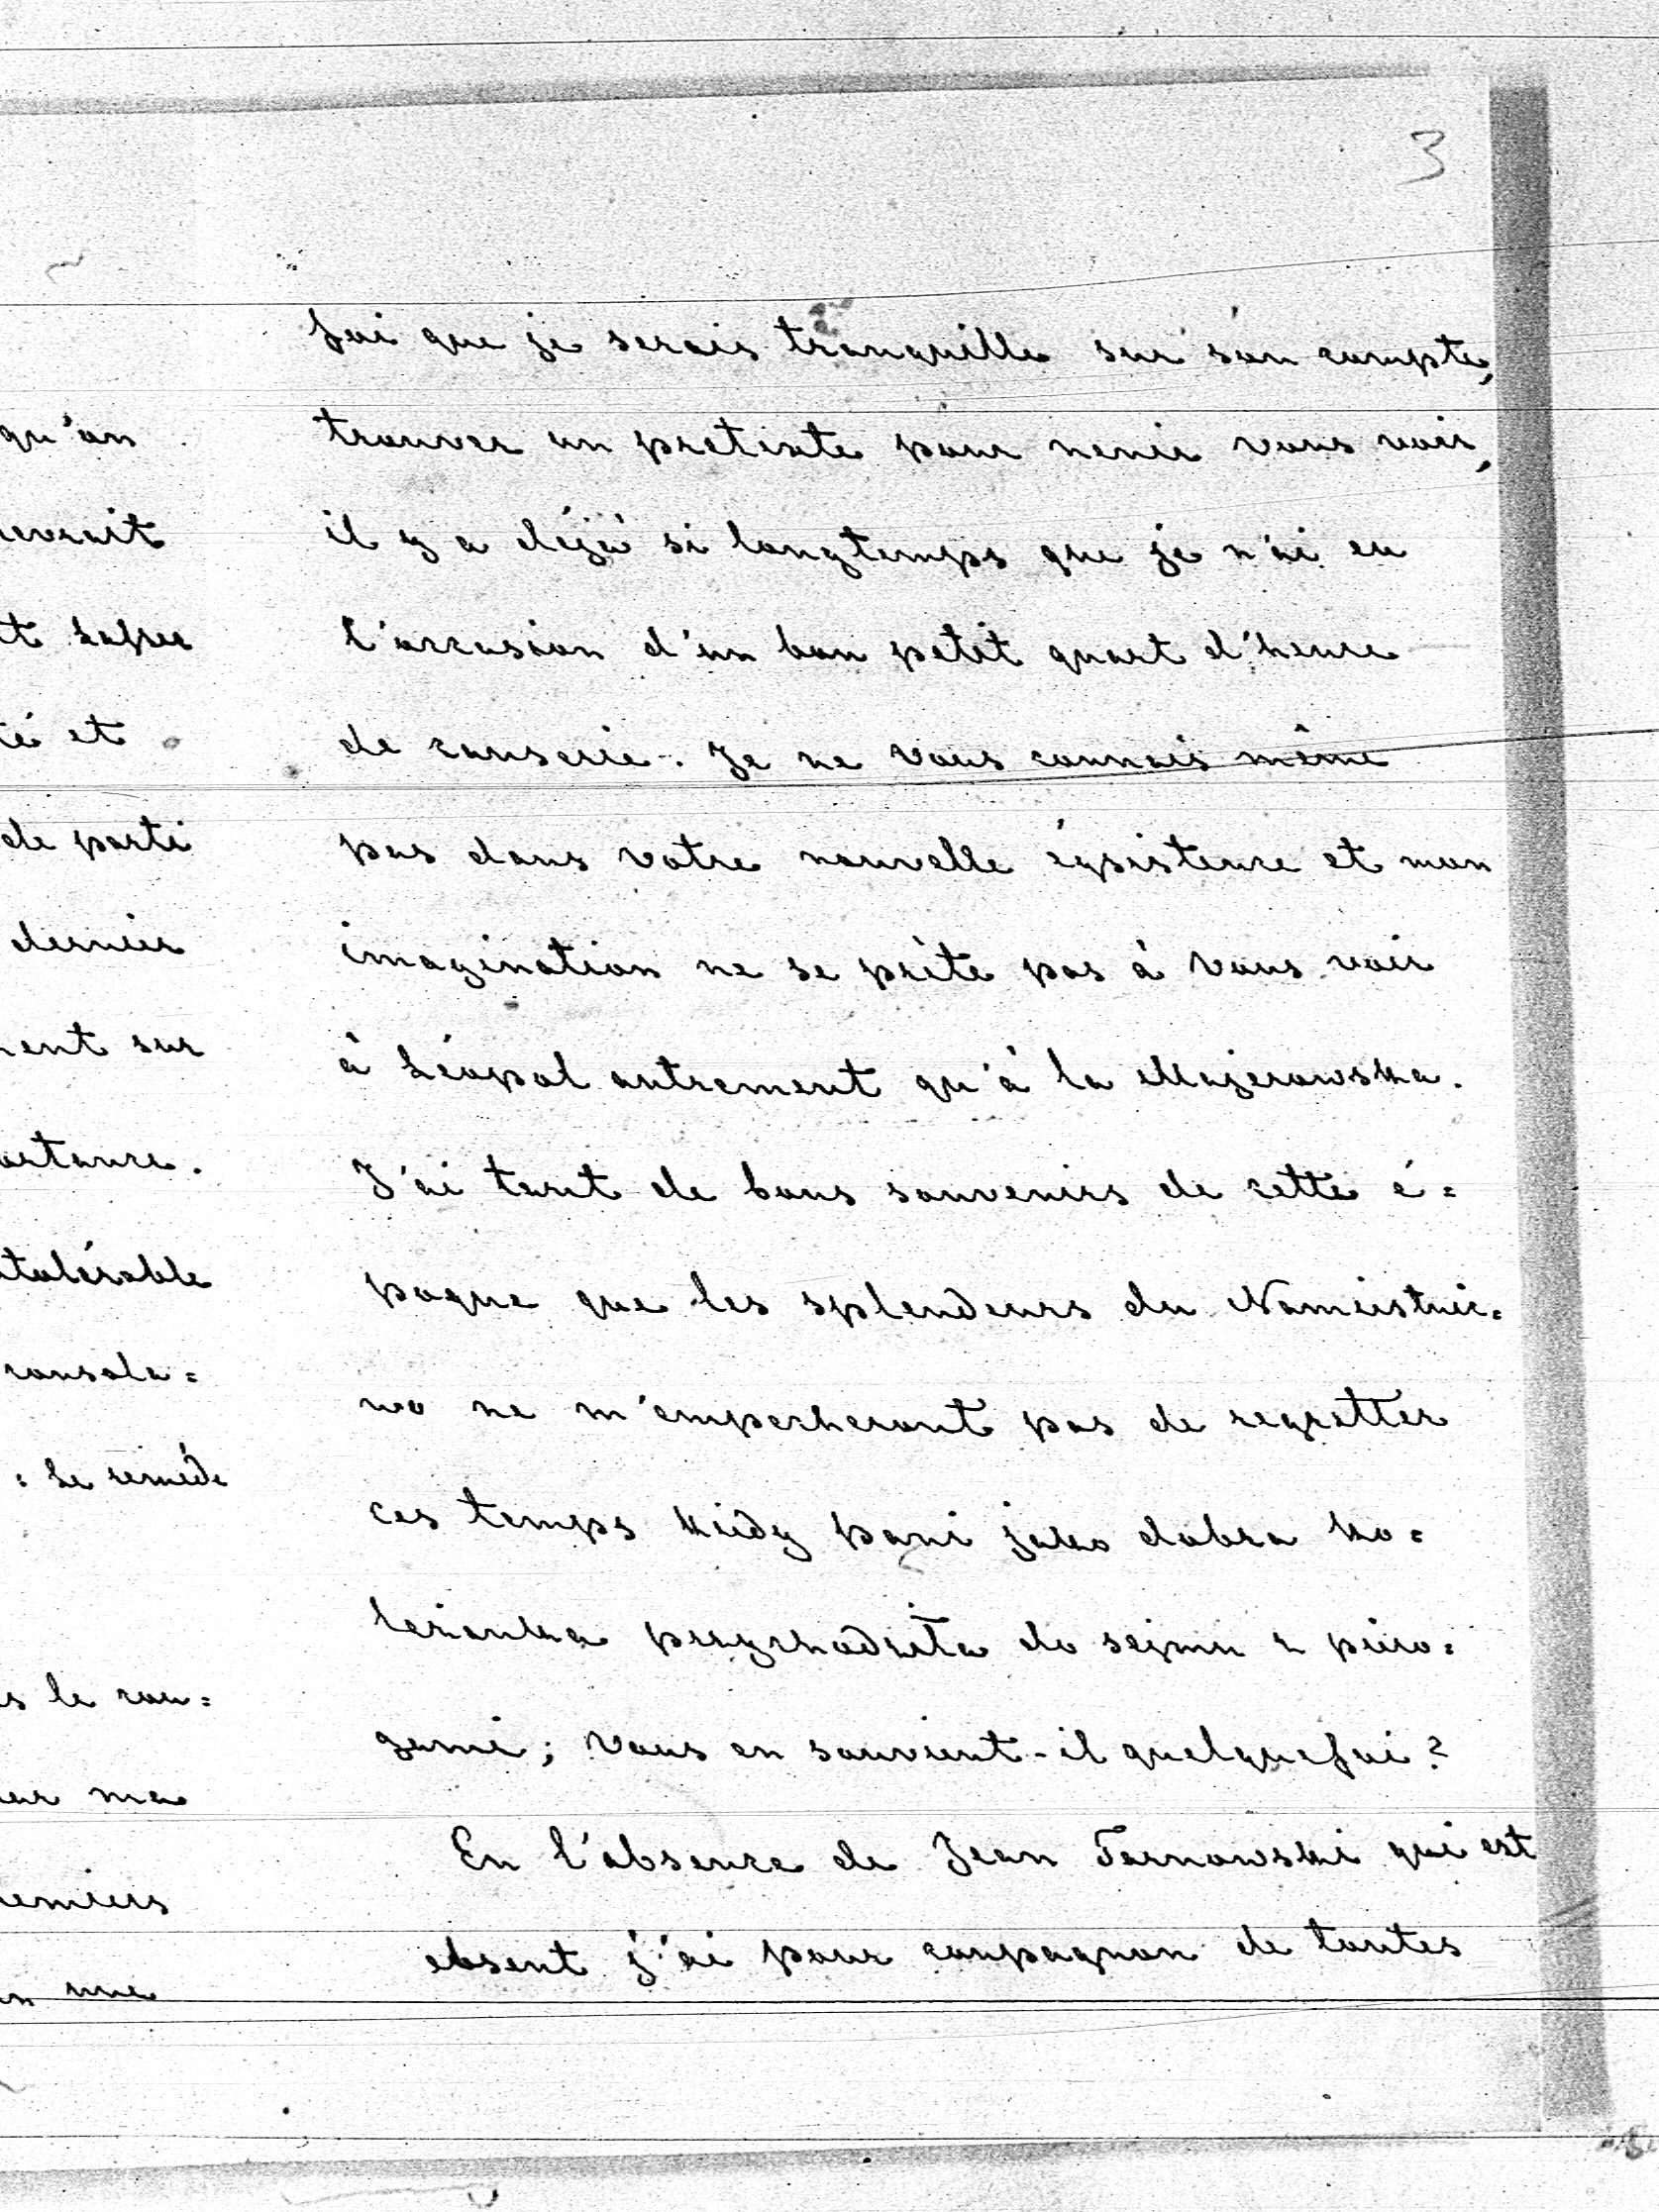 3
foi que je serais tranquille sur son compte,
trouver un pretexte pour venir vous voir,
il y a déjà si longtemps que je n'ai eu
l'occasion d'un bon petit quart d'heure
de causerie. Je ne vous connais même
pas dans votre nouvelle éxistence et mon
imagination ne se prète pas à vous voir
à Léopol autrement qu'à la Majerowska.
J'ai tant de bons souvenirs de cette é=
poque que les splendeurs du Namiestnic=
wo ne m'empecheront pas de regretter
ces temps kiedy pani jako dobra ko=
leżanka przychodziła do sejmu z piero=
gami; vous en souvient-il quelquefoi?
En l'absence de Jean Tarnowski qui est
absent j'ai pour conpagnon de toutes
qu'on
et
de parti
dernier
sur
consola=
: Le remède
le con=
ma
une